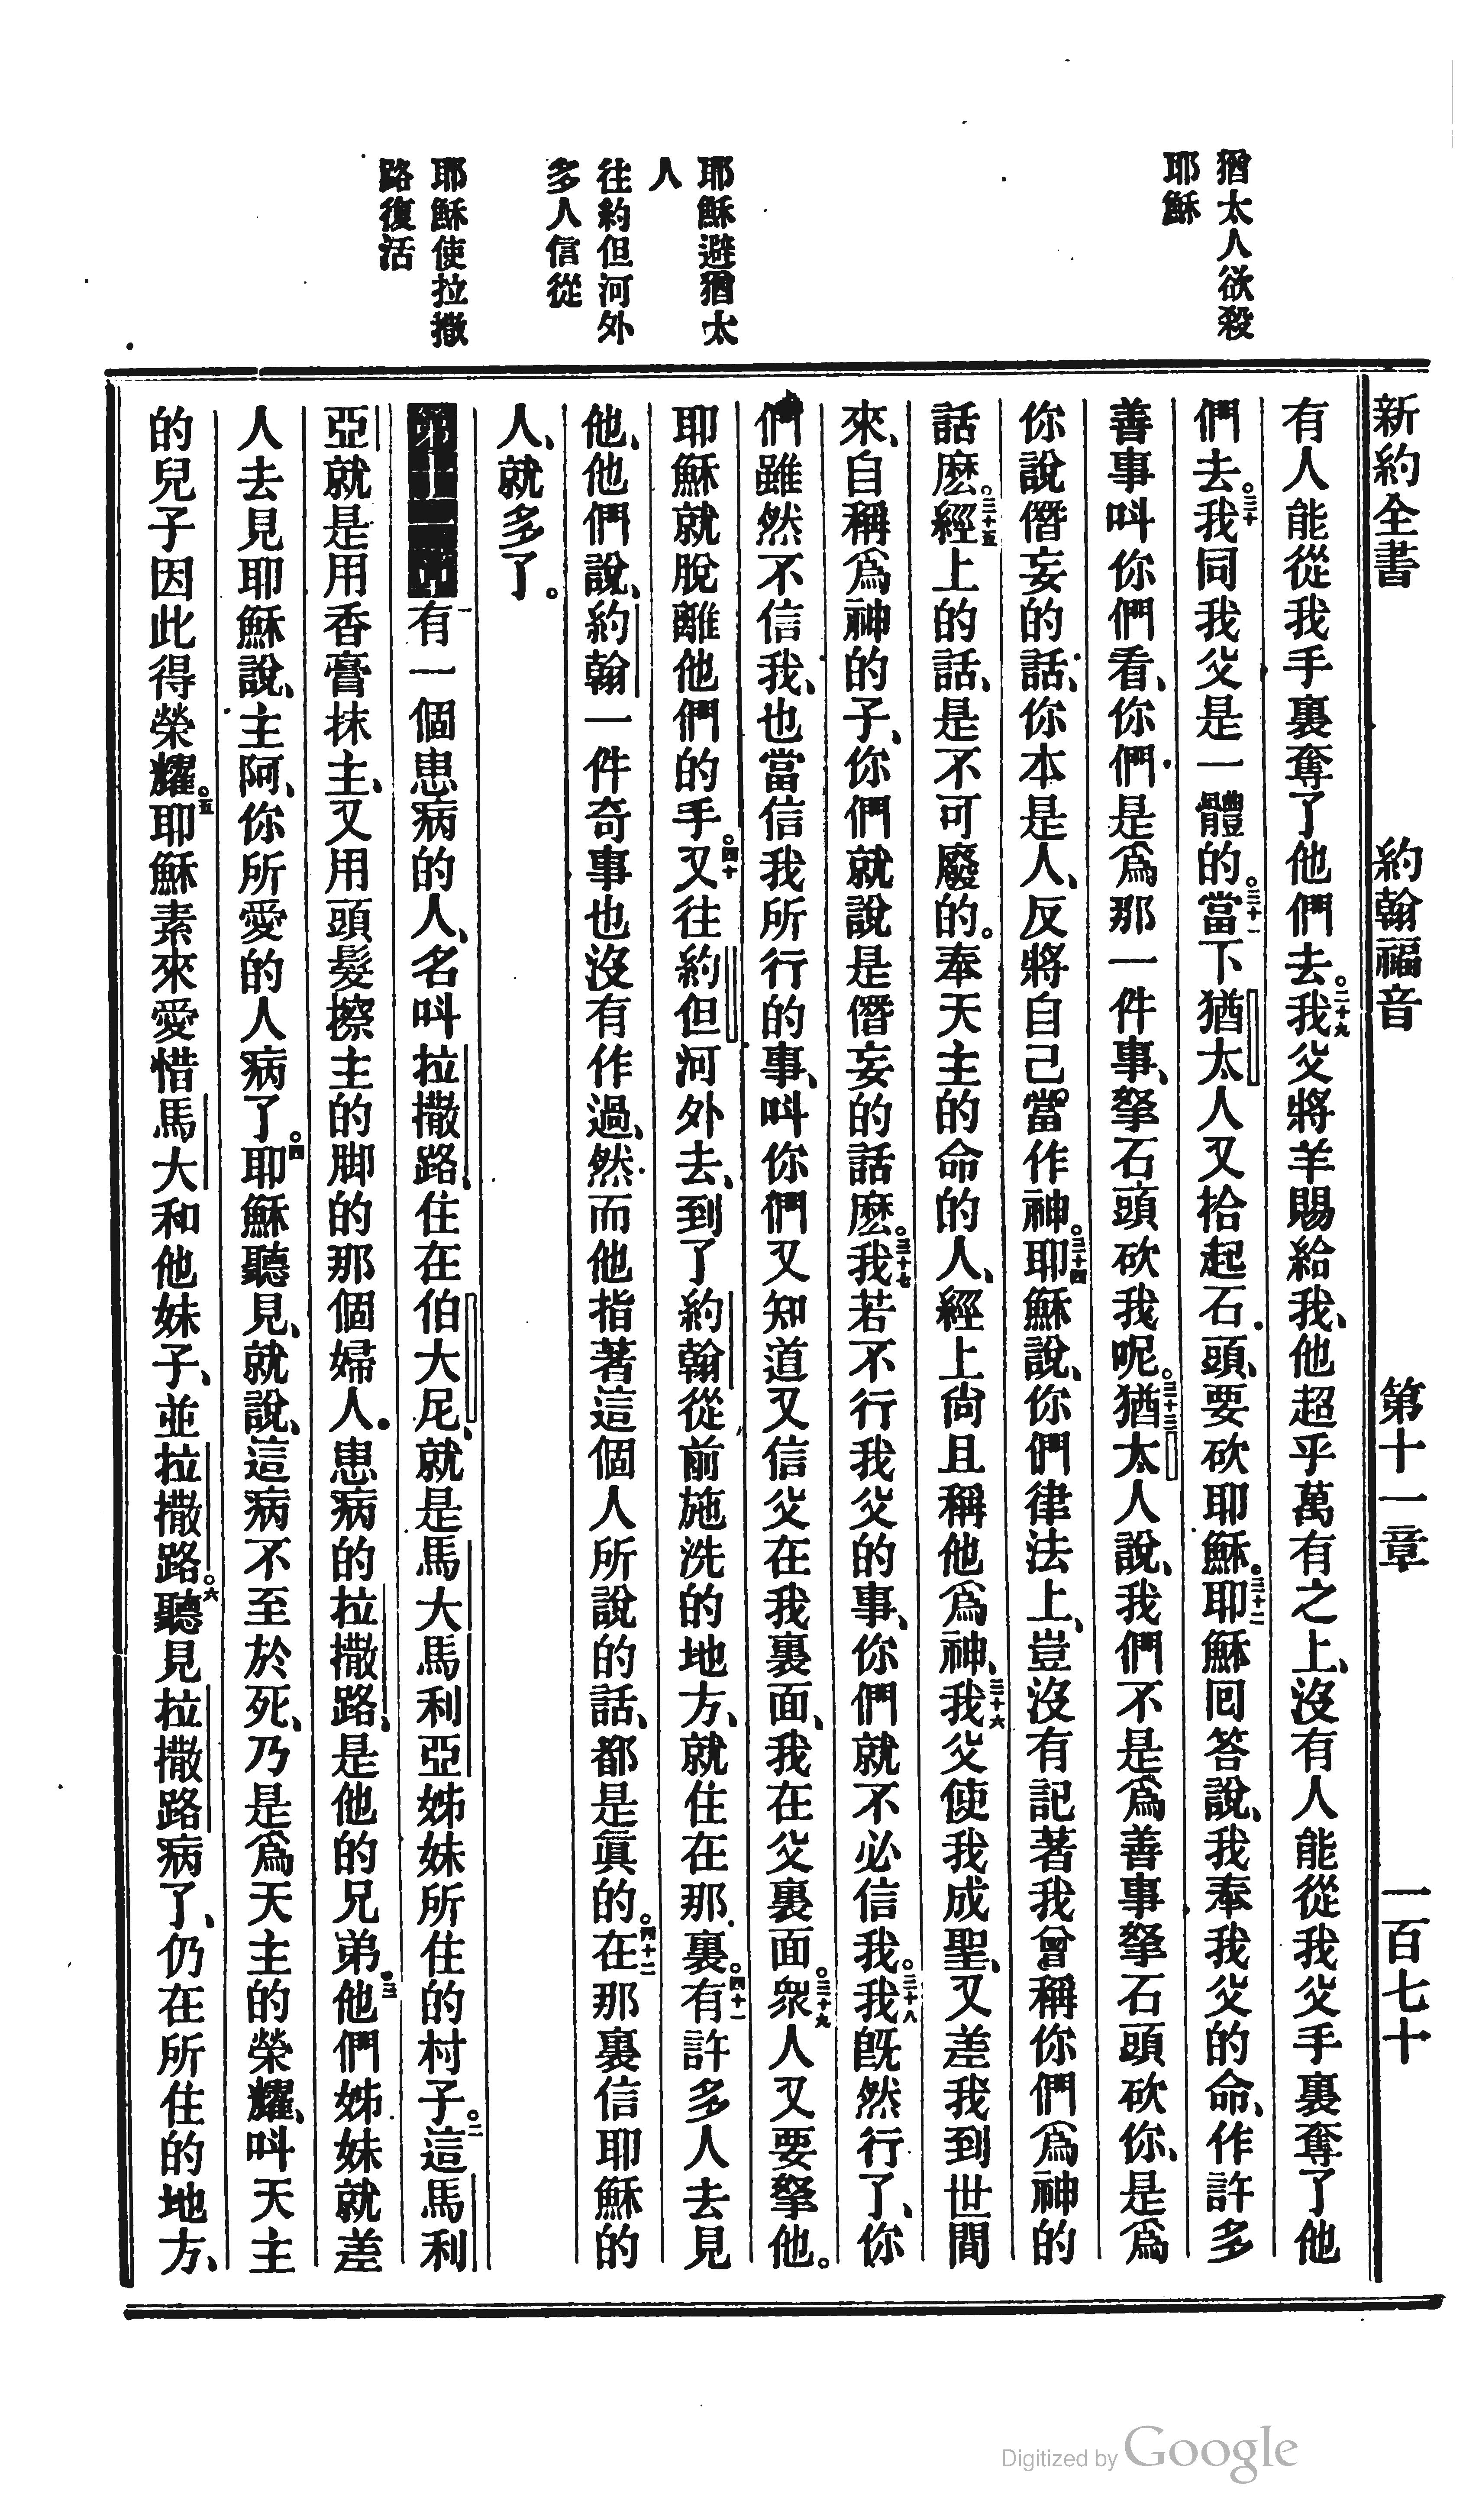 新約全書 約翰福音 第十一章 一百七十
猶太人欲殺
耶穌
耶穌避猶太
人
往約但河外
多人信從
耶穌使拉撒
路復活
有人能從我手裏奪了他們去。二十九我父將羊賜給我、他超乎萬有之上、沒有人能從我父手裏奪了他
們去。三十我同我父是一體的。三十一當下猶太人又拾起石頭、要砍耶穌。三十二耶穌囘答說、我奉我父的命、作許多
善事叫你們看、你們是爲那一件事、拏石頭砍我呢。三十三猶太人說、我們不是爲善事拏石頭砍你、是爲
你說僭妄的話、你本是人、反將自己當作神。三十四耶穌說、你們律法上、豈沒有記著我曾稱你們爲神的
話麽。三十五經上的話、是不可廢的。奉天主的命的人、經上尙且稱他爲神、三十六我父使我成聖、又差我到世間
來、自稱爲神的子、你們就說是僭妄的話麽。三十七我若不行我父的事、你們就不必信我。三十八我旣然行了、你
們雖然不信我、也當信我所行的事、叫你們又知道又信父在我裏面、我在父裏面。三十九衆人又要拏他。
耶穌就脫離他們的手。四十又往約但河外去、到了約翰從前施洗的地方、就住在那裏。四十一有許多人去見
他、他們說、約翰一件奇事也沒有作過、然而他指著這個人所說的話、都是眞的。四十二在那裏信耶穌的
人、就多了。
第十一章一有一個患病的人、名叫拉撒路、住在伯大尼、就是馬大馬利亞姊妹所住的村子。二這馬利
亞就是用香膏抹主、又用頭髮擦主的脚的那個婦人、患病的拉撒路、是他的兄弟。三他們姊妹就差
人去見耶穌說、主阿、你所愛的人病了。四耶穌聽見、就說、這病不至於死、乃是爲天主的榮耀、叫天主
的兒子因此得榮耀。五耶穌素來愛惜馬大和他妹子、並拉撒路。六聽見拉撒路病了、仍在所住的地方、
Digitized by Google